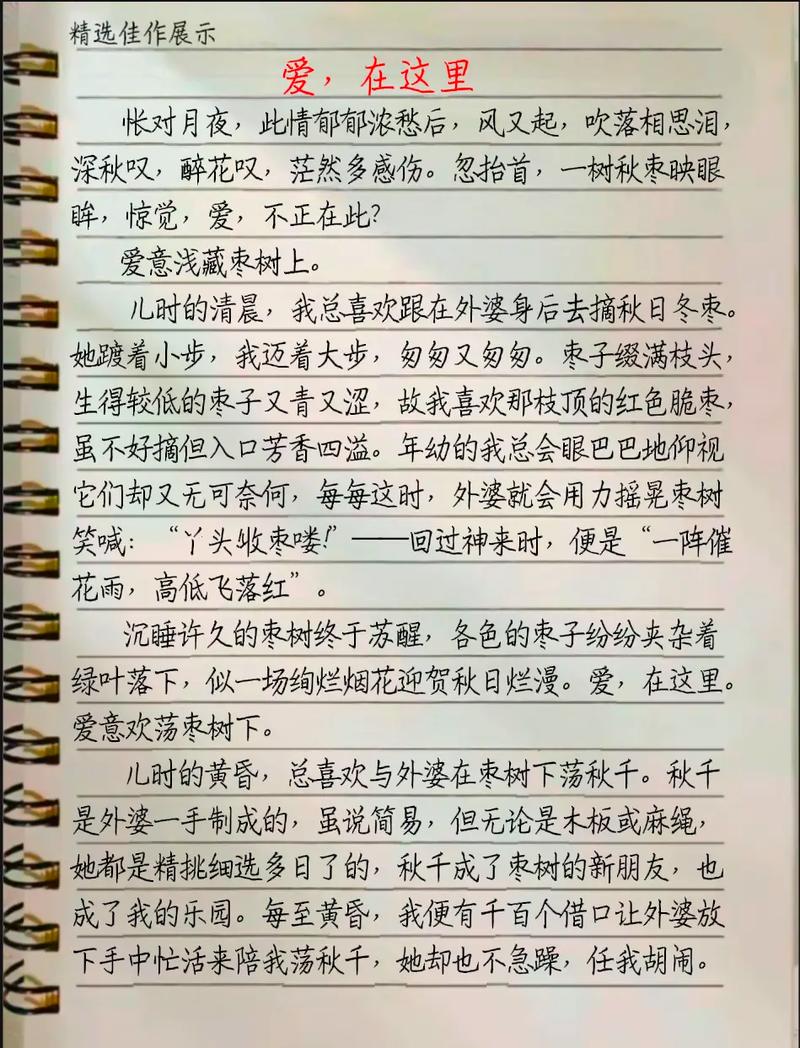 精选佳作展示
爱，在这里
怅对月夜，此情郁郁浓愁后，风又起，吹落相思泪，
深秋叹，醉花叹，茫然多感伤。忽抬首，一树秋枣映眼
眸，惊觉，爱，不正在此？
爱意浅藏枣树上。
儿时的清晨，我总喜欢跟在外婆身后去摘秋日冬枣。
她踱着小步，我迈着大步，匆匆又匆匆。枣子缀满枝头，
生得较低的枣子又青又涩，故我喜欢那枝顶的红色脆枣，
虽不好摘但入口芳香四溢。年幼的我总会眼巴巴地仰视
它们却又无可奈何，每每这时，外婆就会用力摇晃枣树
笑喊：“丫头收枣喽！”——回过神来时，便是“一阵催
花雨，高低飞落红”。
沉睡许久的枣树终于苏醒，各色的枣子纷纷夹杂着
绿叶落下，似一场绚烂烟花迎贺秋日烂漫。爱，在这里。
爱意欢荡枣树下。
儿时的黄昏，总喜欢与外婆在枣树下荡秋千。秋千
是外婆一手制成的，虽说简易，但无论是木板或麻绳，
她都是精挑细选多日了的，秋千成了枣树的新朋友，也
成了我的乐园。每至黄昏，我便有千百个借口让外婆放
下手中忙活来陪我荡秋千，她却也不急躁，任我胡闹。